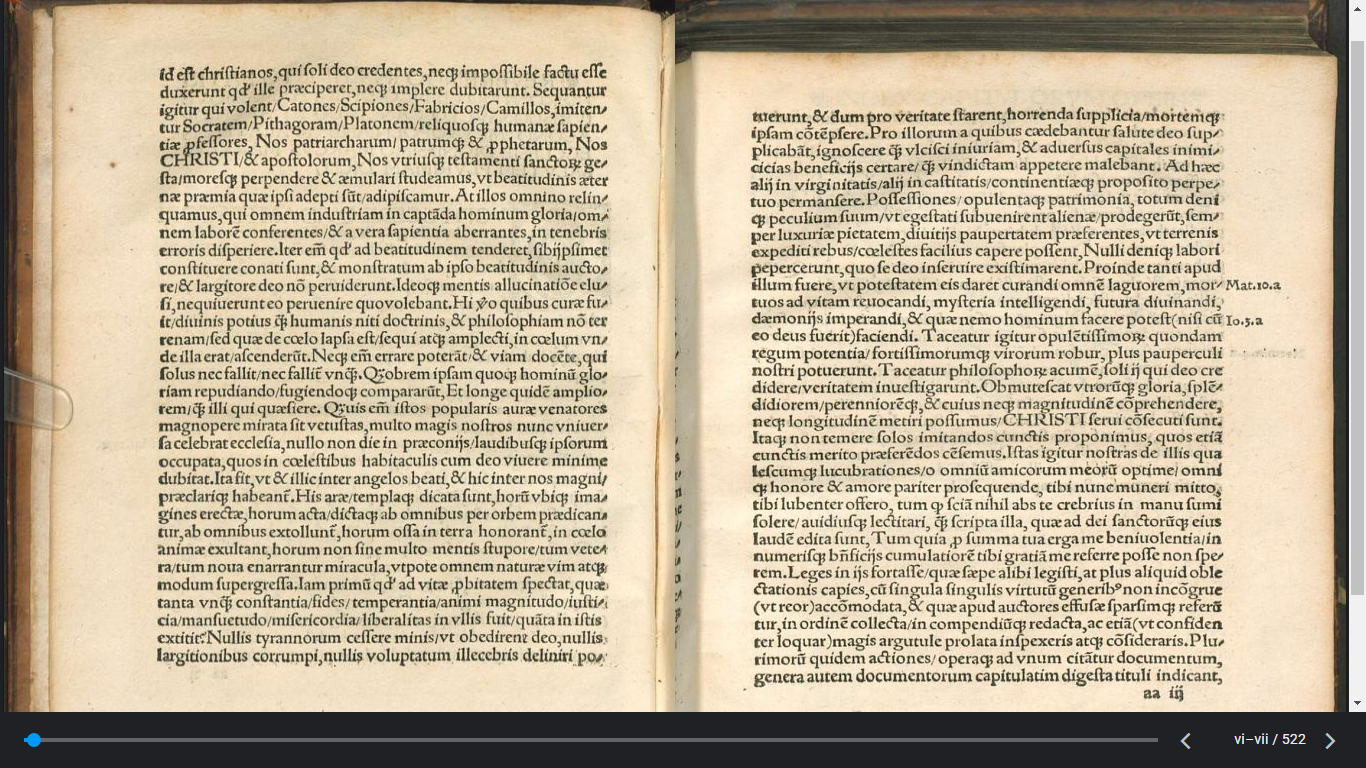 id est christianos, qui soli deo credentes, neqꝫ impossibile factu esse
duxerunt qd' ille præciperet, neqꝫ implere dubitarunt. Sequantur
igitur qui volent/Catones/Scipiones/Fabricios/Camillos, imiten⸗
tur Socratem/Pithagoram/Platonem/reliquosqꝫ humanæ sapien⸗
tiæ ꝓfessores, Nos patriarcharum/patrumqꝫ & ꝓphetarum, Nos
CHRISTI/& apostolorum, Nos vtriusqꝫ testamenti sanctoꝝ ge⸗
sta/moresqꝫ perpendere & æmulari studeamus, vt beatitudinis æter
næ præmia quæ ipsi adepti sūt/adipiscamur. At illos omnino relin⸗
quamus, qui omnem industriam in captāda hominum gloria/om⸗
nem laborē conferentes/& a vera sapientia aberrantes, in tenebris
erroris disperiere. Iter em̄ qd' ad beatitudinem tenderet, sibijpsimet
constituere conati sunt, & monstratum ab ipso beatitudinis aucto⸗
re/& largitore deo nō peruiderunt. Ideoqꝫ mentis allucinatiōe elu⸗
si, nequiuerunt eo peruenire quo volebant. Hi ꝟo quibus curæ fu⸗
it/diuinis potius q̄ꝫ humanis niti doctrinis, & philosophiam nō ter
renam/sed quæ de cœlo lapsa est/sequi atqꝫ amplecti, in cœlum vn⸗
de illa erat/ascenderūt. Neqꝫ em̄ errare poterāt/& viam docēte, qui
solus nec fallit/nec fallit̄ vnq̄ꝫ. Qꝫobrem ipsam quoqꝫ hominū glo⸗
riam repudiando/fugiendoqꝫ compararūt, Et longe quidē amplio⸗
rem/q̄ꝫ illi qui quæsiere. Qꝫuis em̄ istos popularis auræ venatores
magnopere mirata sit vetustas, multo magis nostros nunc vniuer⸗
sa celebrat ecclesia, nullo non die in præconijs/laudibusqꝫ ipsorum
occupata, quos in cœlestibus habitaculis cum deo viuere minime
dubitat. Ita fit, vt & illic inter angelos beati, & hic inter nos magni/
præclariqꝫ habeant̄. His aræ/templaqꝫ dicata sunt, horū vbiqꝫ ima⸗
gines erectæ, horum acta/dictaqꝫ ab omnibus per orbem prædican⸗
tur, ab omnibus extollunt̄, horum ossa in terra honorant̄, in cœlo
animæ exultant, horum non sine multo mentis stupore/tum vete⸗
ra/tum noua enarrantur miracula, vtpote omnem naturæ vim atqꝫ
modum supergressa. Iam primū qd' ad vitæ ꝓbitatem spectat, quæ
tanta vnq̄ꝫ constantia/fides/temperantia/animi magnitudo/iusti⸗
cia/mansuetudo/misericordia/liberalitas in vllis fuit/quāta in istis
extitit? Nullis tyrannorum cessere minis/vt obedirent deo, nullis
largitionibus corrumpi, nullis voluptatum illecebris deliniri po⸗
tuerunt, & dum pro veritate starent, horrenda supplicia/mortemqꝫ
ipsam cōtēpsere. Pro illorum a quibus cædebantur salute deo sup⸗
plicabāt, ignoscere q̄ꝫ vlcisci iniuriam, & aduersus capitales inimi⸗
cicias beneficijs certare/q̄ꝫ vindictam appetere malebant. Ad hæc
alij in virginitatis/alij in castitatis/continentiæqꝫ proposito perpe⸗
tuo permansere. Possessiones/opulentaqꝫ patrimonia, totum deni
qꝫ peculium suum/vt egestati subuenirent alienæ/prodegerūt, sem⸗
per luxuriæ pietatem, diuitijs paupertatem præferentes, vt terrenis
expediti rebus/cœlestes facilius capere possent, Nulli deniqꝫ labori
pepercerunt, quo se deo inseruire existimarent. Proinde tanti apud
illum fuere, vt potestatem eis daret curandi omnē laguorem, mor⸗ Mat.10.a
tuos ad vitam reuocandi, mysteria intelligendi, futura diuinandi,
dæmonijs imperandi, & quæ nemo hominum facere potest(nisi cū Io.3.a
eo deus fuerit)faciendi. Taceatur igitur opulētissimoꝝ quondam
regum potentia/fortissimorumqꝫ virorum robur, plus pauperculi
nostri potuerunt. Taceatur philosophoꝝ acumē, soli ij qui deo cre
didere/veritatem inuestigarunt. Obmutescat vtrorūqꝫ gloria, splē⸗
didiorem/perenniorēqꝫ, & cuius neqꝫ magnitudinē cōprehendere,
neqꝫ longitudinē metiri possumus/CHRISTI serui cōsecuti sunt.
Itaqꝫ non temere solos imitandos cunctis proponimus, quos etiā
cunctis merito præferēdos cēsemus. Istas igitur nostras de illis qua
lescumqꝫ lucubrationes/o omniū amicorum meorū optime/omni
qꝫ honore & amore pariter prosequende, tibi nunc muneri mitto,
tibi lubenter offero, tum ꝙ sciā nihil abs te crebrius in manu sumi
solere/auidiusqꝫ lectitari, q̄ꝫ scripta illa, quæ ad dei sanctorūqꝫ eius
laudē edita sunt, Tum quia ꝓ summa tua erga me beniuolentia/in
numerisqꝫ bn̄ficijs cumulatiorē tibi gratiā me referre posse non spe⸗
rem. Leges in ijs fortasse/quæ sæpe alibi legisti, at plus aliquid oble
ctationis capies, cū singula singulis virtutū generibꝰ non incōgrue
(vt reor)accōmodata, & quæ apud auctores effusæ sparsimqꝫ referū
tur, in ordinē collecta/in compendiūqꝫ redacta, ac etiā(vt confiden
ter loquar)magis argutule prolata inspexeris atqꝫ cōsideraris. Plu⸗
rimorū quidem actiones/operaqꝫ ad vnum citātur documentum,
genera autem documentorum capitulatim digesta tituli indicant,
aa iij
vi–vii / 522